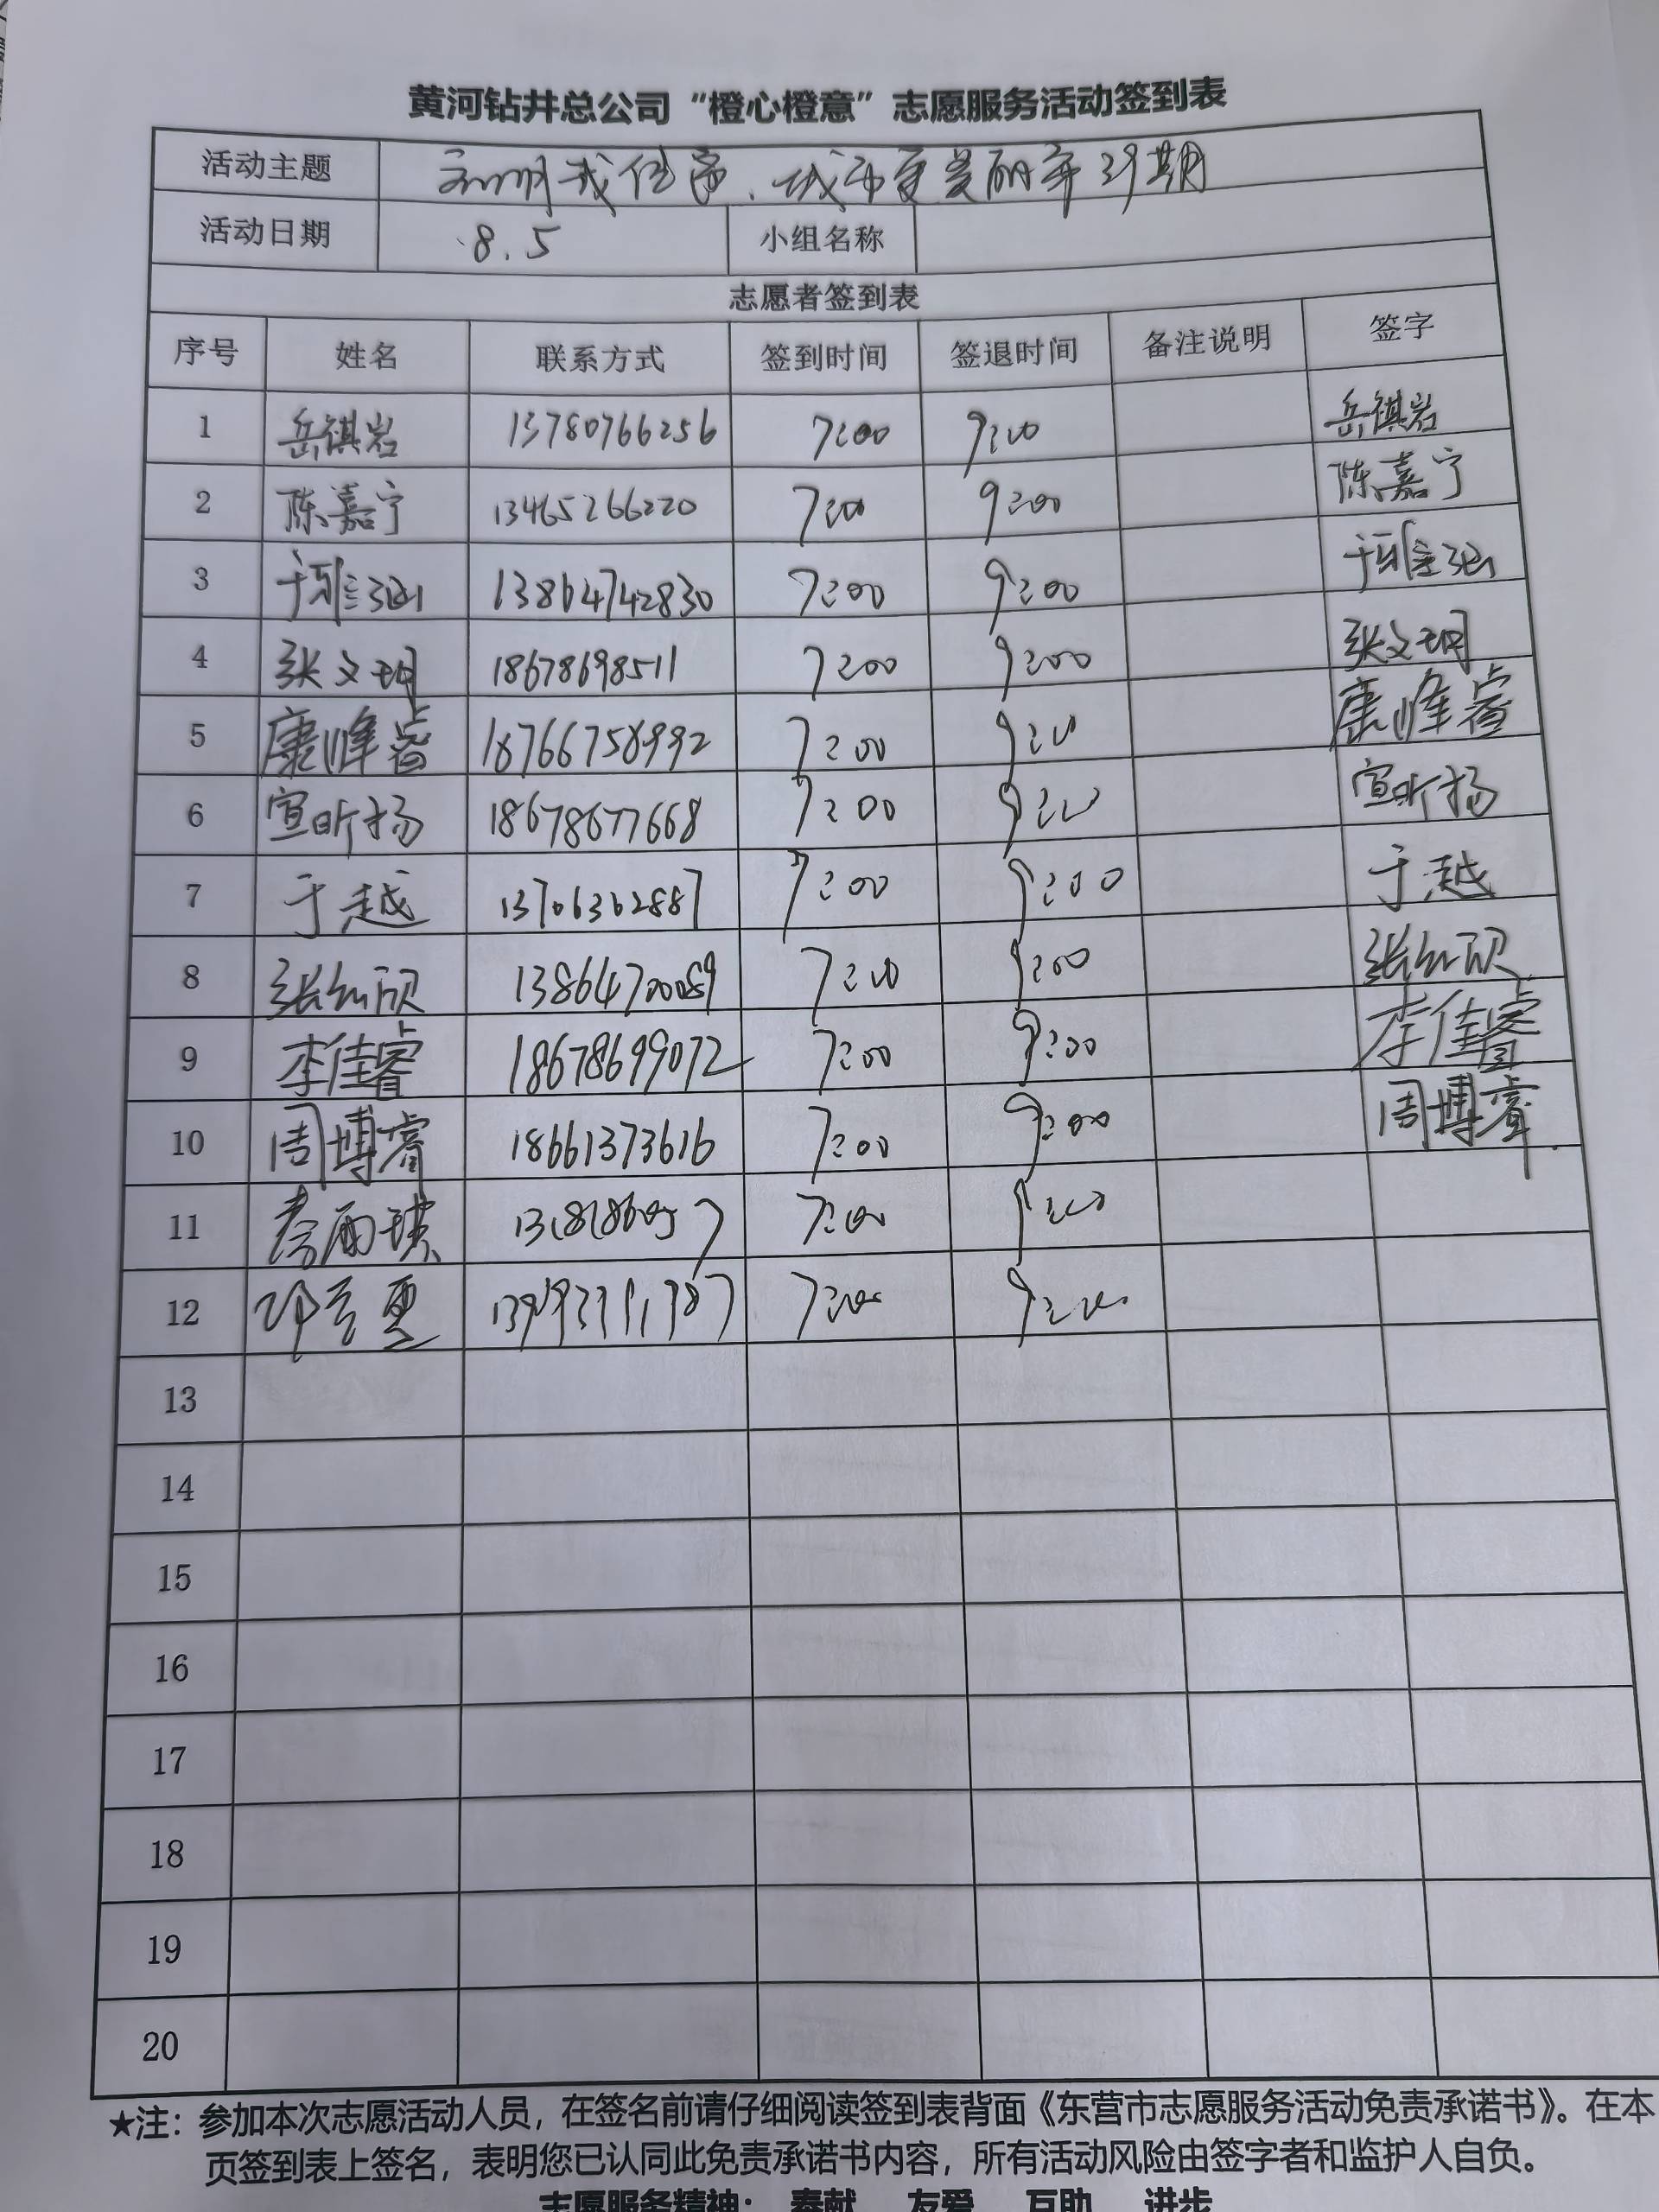 黄河钻井总公司“橙心橙意”志愿服务活动签到表
活动主题 文明我任务、城市更美丽第39期
活动日期 8.5 小组名称
志愿者签到表
序号 姓名 联系方式 签到时间 签退时间 备注说明 签字
1 岳祺岩 13780766256 7:00 9:00 岳祺岩
2 陈嘉宁 13465266220 7:00 9:00 陈嘉宁
3 于雅涵 13864742830 7:00 9:00 于雅涵
4 张文玥 18678698511 7:00 9:00 张文玥
5 康峰睿 18766758992 7:00 9:00 康峰睿
6 宣昕扬 18678677668 7:00 9:00 宣昕扬
7 于越 13706362887 7:00 9:00 于越
8 张 欣 13864700089 7:00 9:00 张 欣
9 李佳睿 18678699072 7:00 9:00 李佳睿
10 周博睿 18661373616 7:00 9:00 周博睿
11 秦雨琪 7:00 9:00
12 7:00 9:00
13
14
15
16
17
18
19
20
★注：参加本次志愿活动人员，在签名前请仔细阅读签到表背面《东营市志愿服务活动免责承诺书》。在本
页签到表上签名，表明您已认同此免责承诺书内容，所有活动风险由签字者和监护人自负。
志愿服务精神： 奉献 友爱 互助 进步